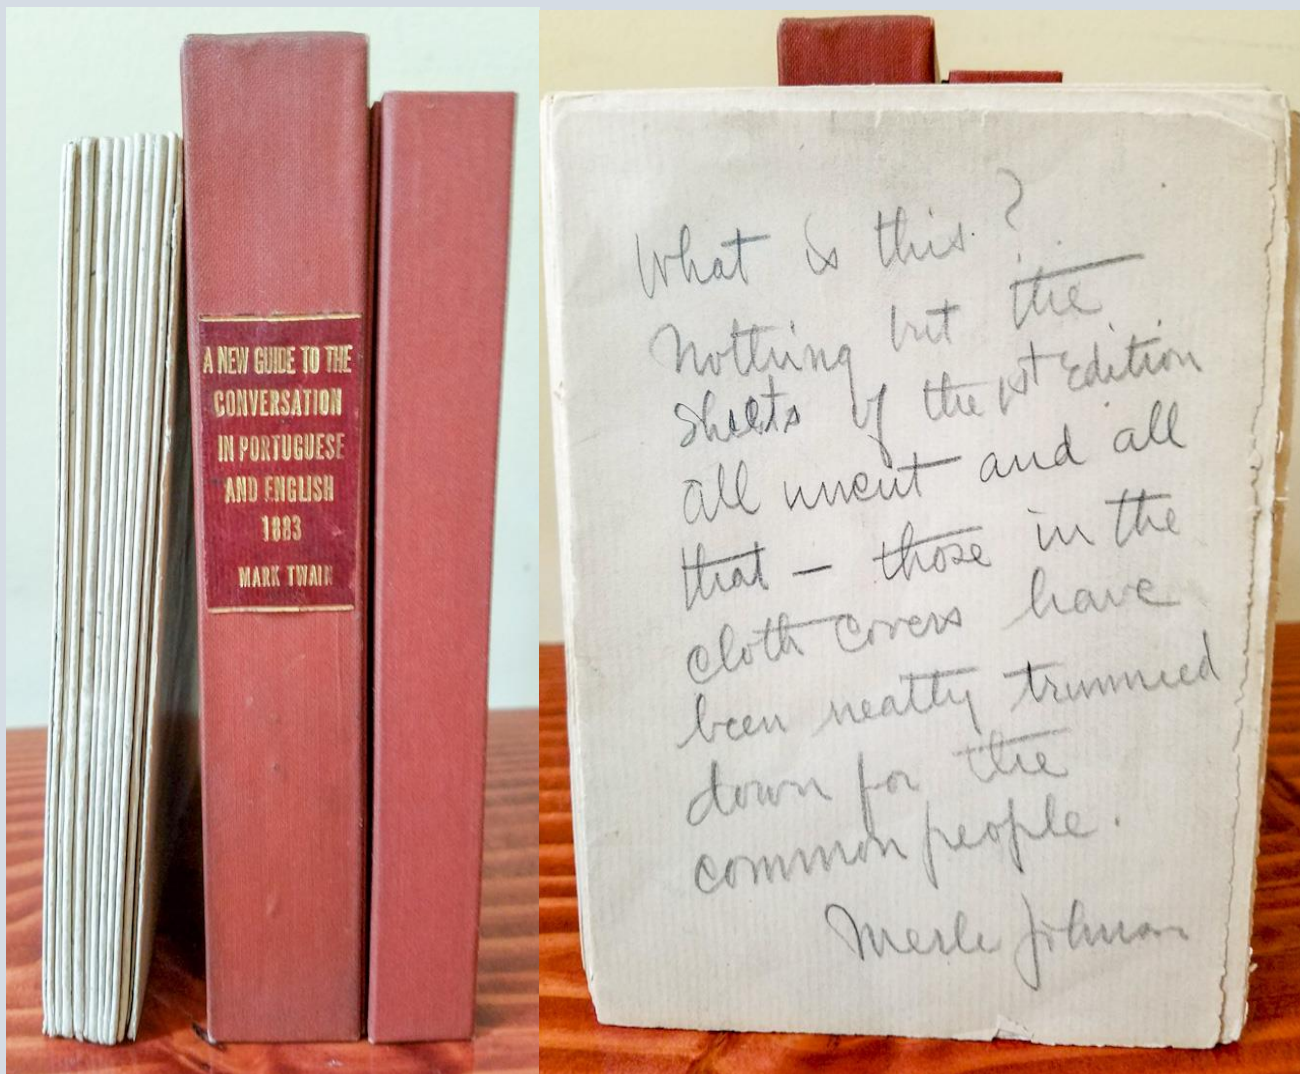 A NEW GUIDE TO THE
CONVERSATION
IN PORTUGUESE
AND ENGLISH
1883
MARK TWAIN
What is this?
Nothing but the
sheets of the 1st Edition
all uncut and all
that — those in the
cloth covers have
been neatly trimmed
down for the
common people.
Merle Johnson